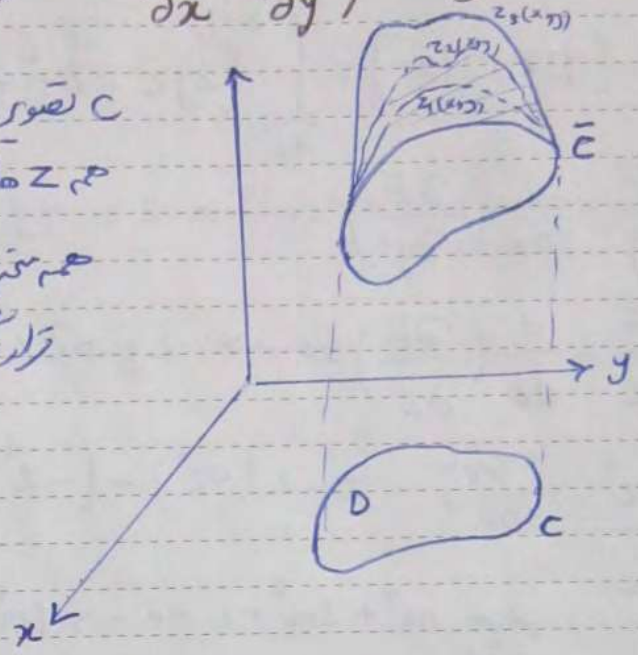 ∂x ∂y
z₃(x,y)
z₂(x,y)
z₁(x,y)
C تصویر
C̄
هم z
همه
y
D
C
x